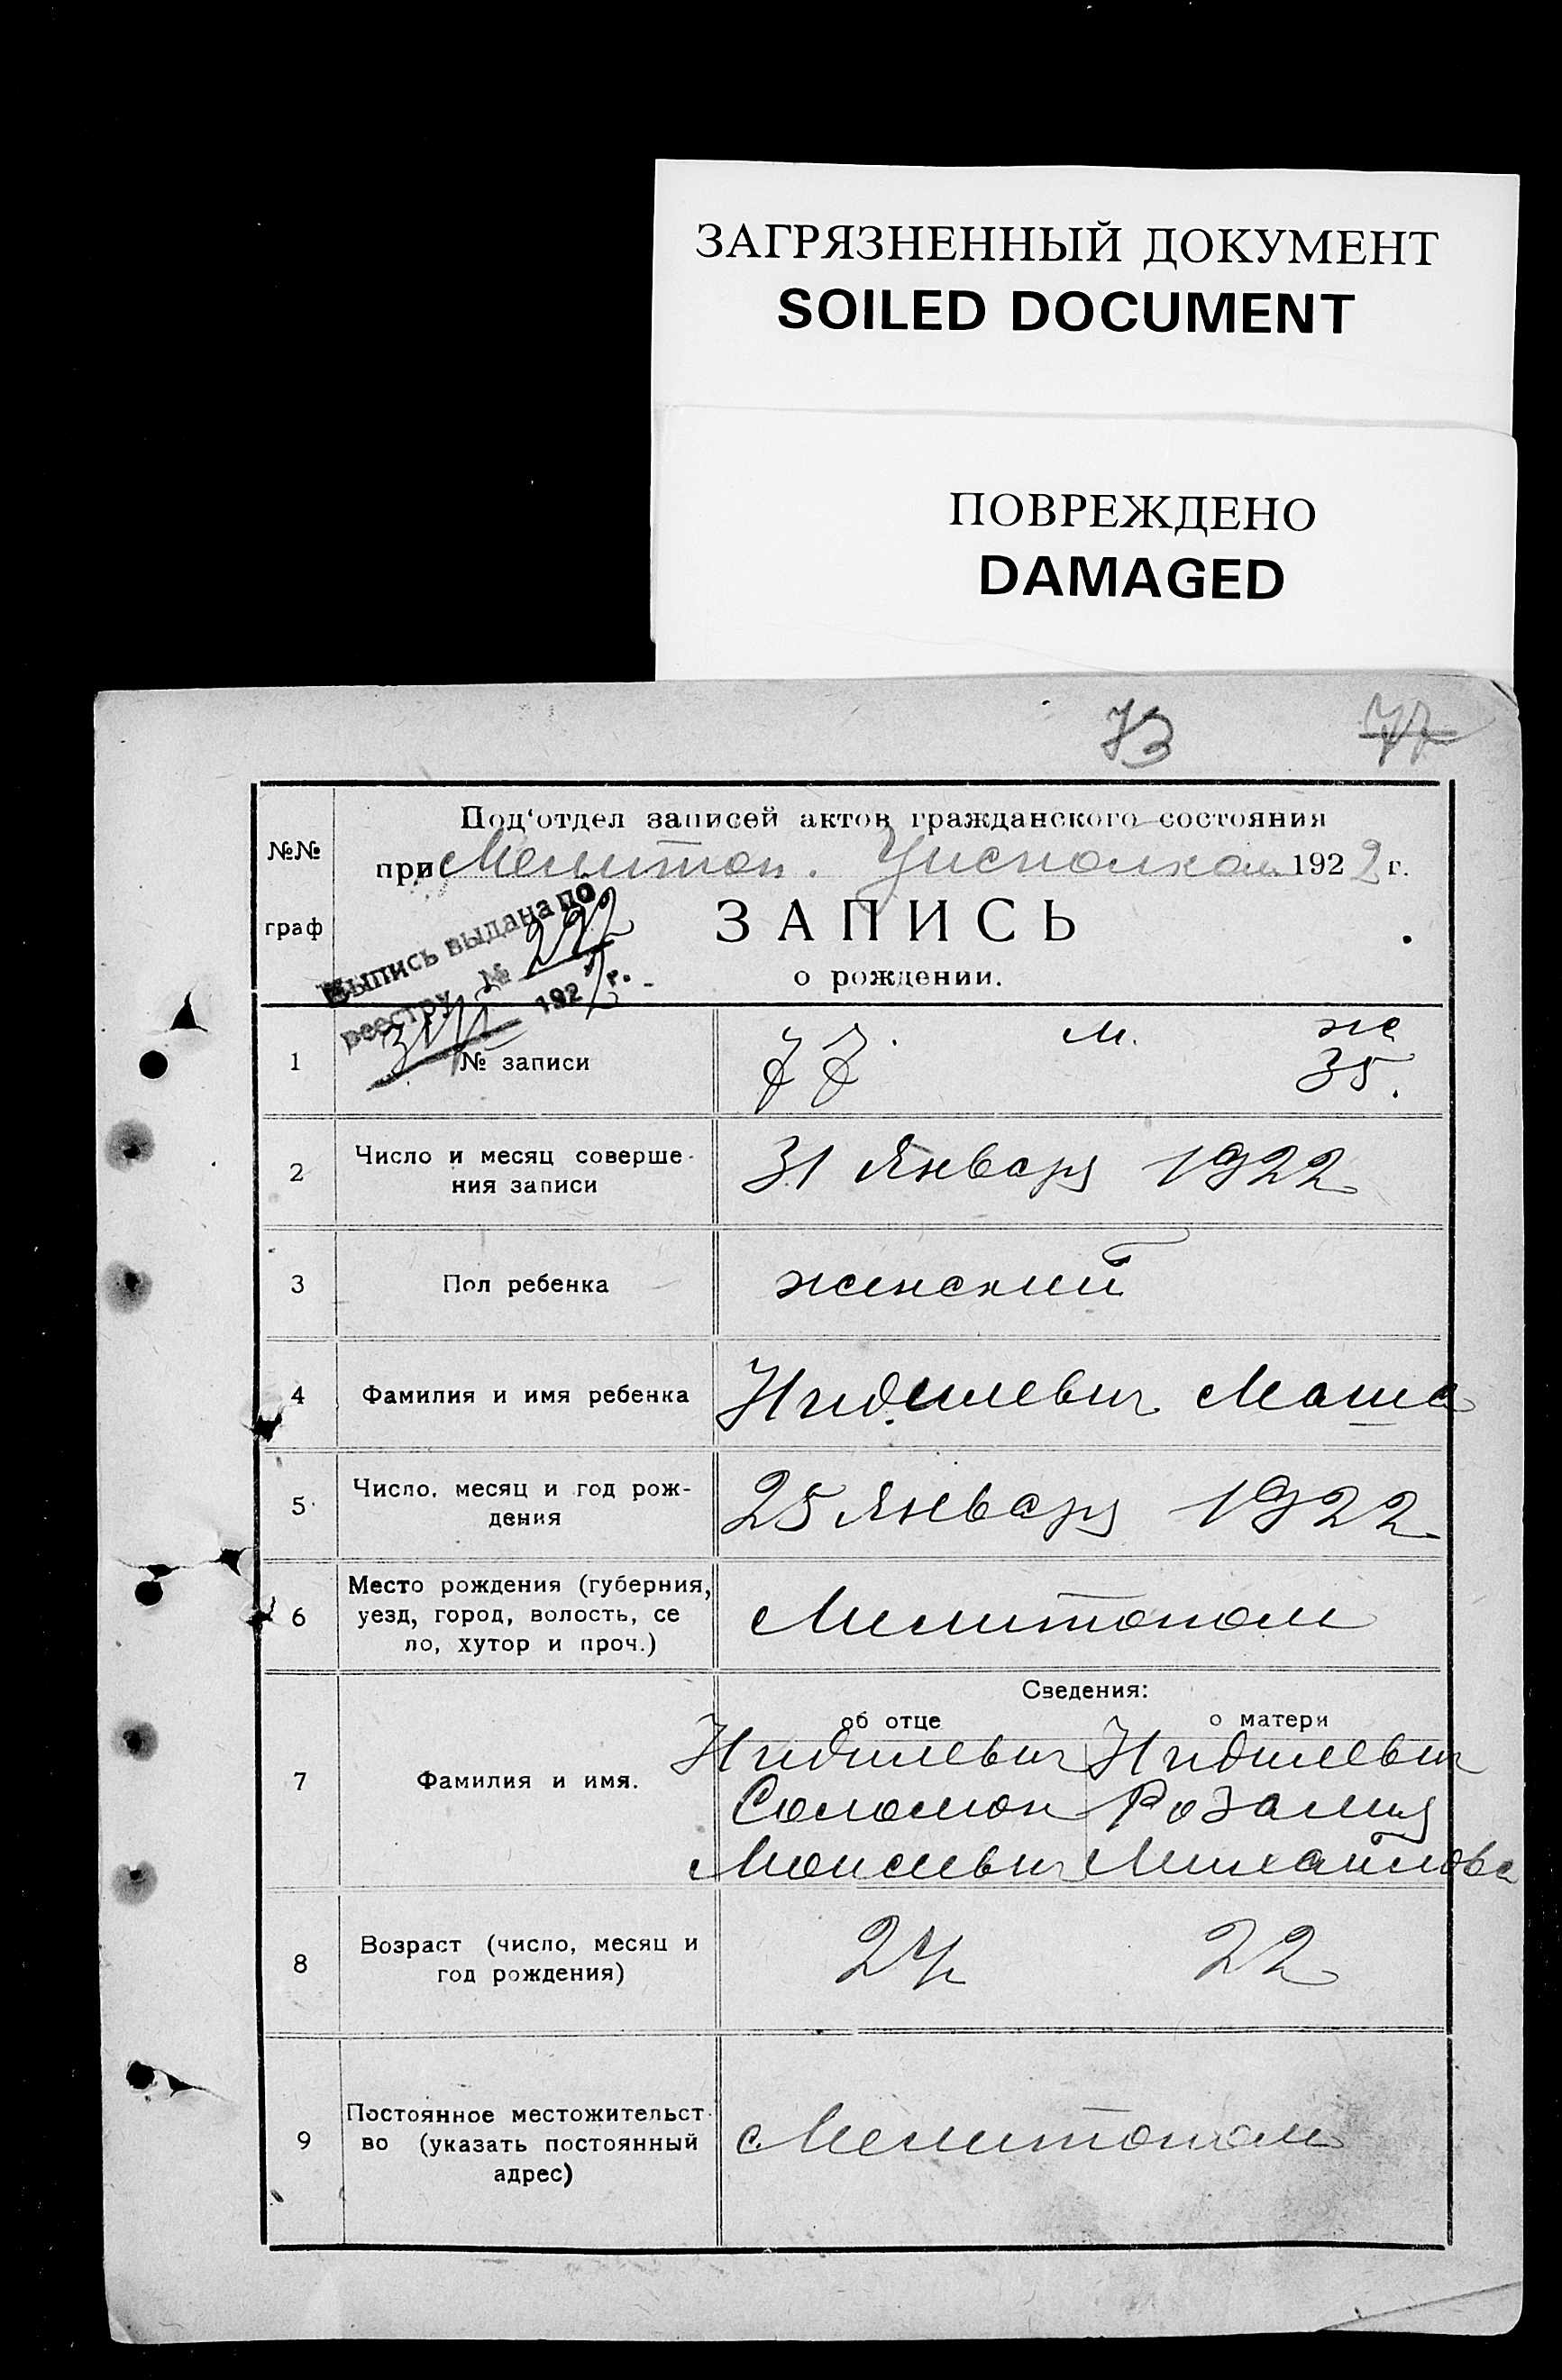 ЗАГРЯЗНЕННЫЙ ДОКУМЕНТ
SOILED DOCUMENT
ПОВРЕЖДЕНО
DAMAGED
73 77
Под‘отдел записей актов гражданского состояния
№№
при Мелитоп. Уисполком 1922 г.
граф
Выпись выдана по
реестру № 192 г.
ЗАПИСЬ
о рождении.
1 № записи 77. м. же 35.
2 Число и месяц соверше-
ния записи
31 Января 1922
3 Пол ребенка женский
4 Фамилия и имя ребенка Маша
5 Число, месяц и год рож-
дения
25 Января 1922
6 Место рождения (губерния,
уезд, город, волость, се
ло, хутор и проч.)
Мелитополь
Сведения:
об отце о матери
7 Фамилия и имя.
Соломон Розалия
Моисеевич Михайлова
8 Возраст (число, месяц и
год рождения)
24 22
9 Постоянное местожительст-
во (указать постоянный
адрес)
Мелитополь